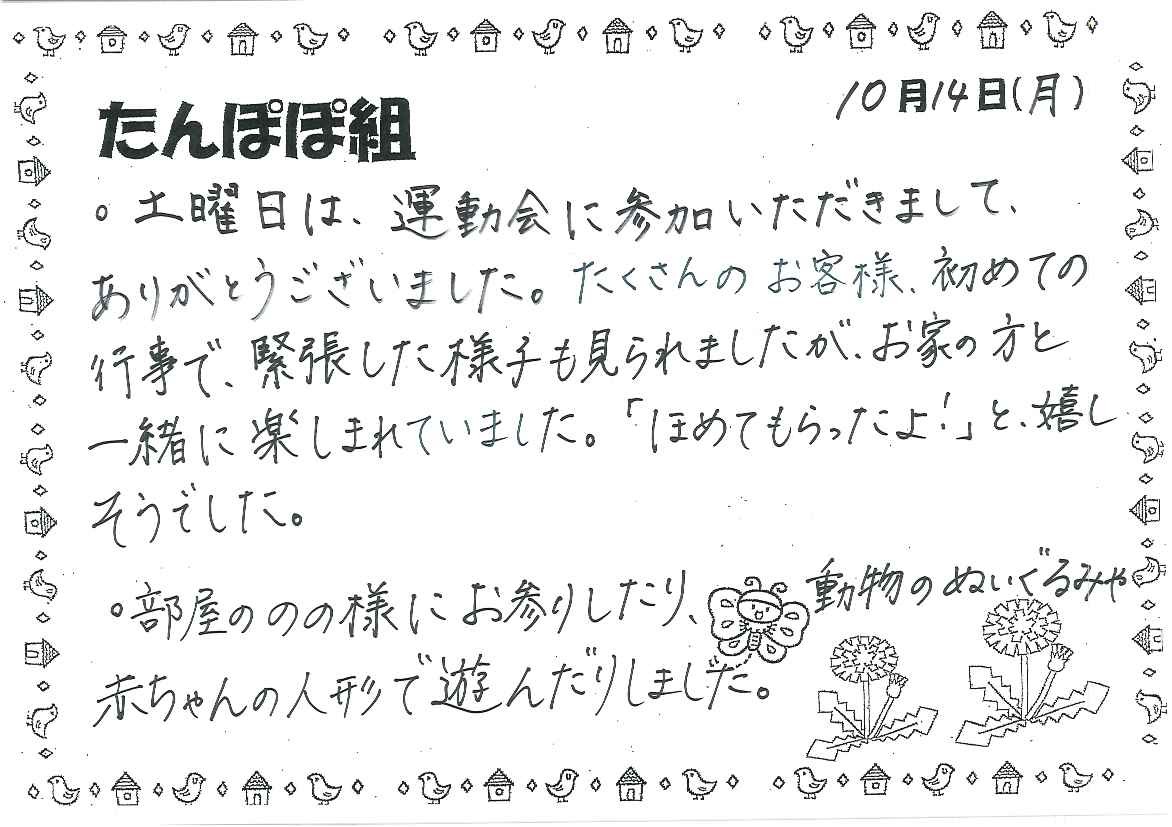 10月14日(月)
たんぽぽ組
。土曜日は、運動会に参加いただきまして、
ありがとうございました。たくさんのお客様、初めての
行事で、緊張した様子も見られましたが、お家の方と
一緒に楽しまれていました。「ほめてもらったよ!」と、嬉し
そうでした。
。部屋ののの様にお参りしたり、動物のぬいぐるみや
赤ちゃんの人形で遊んだりしました。